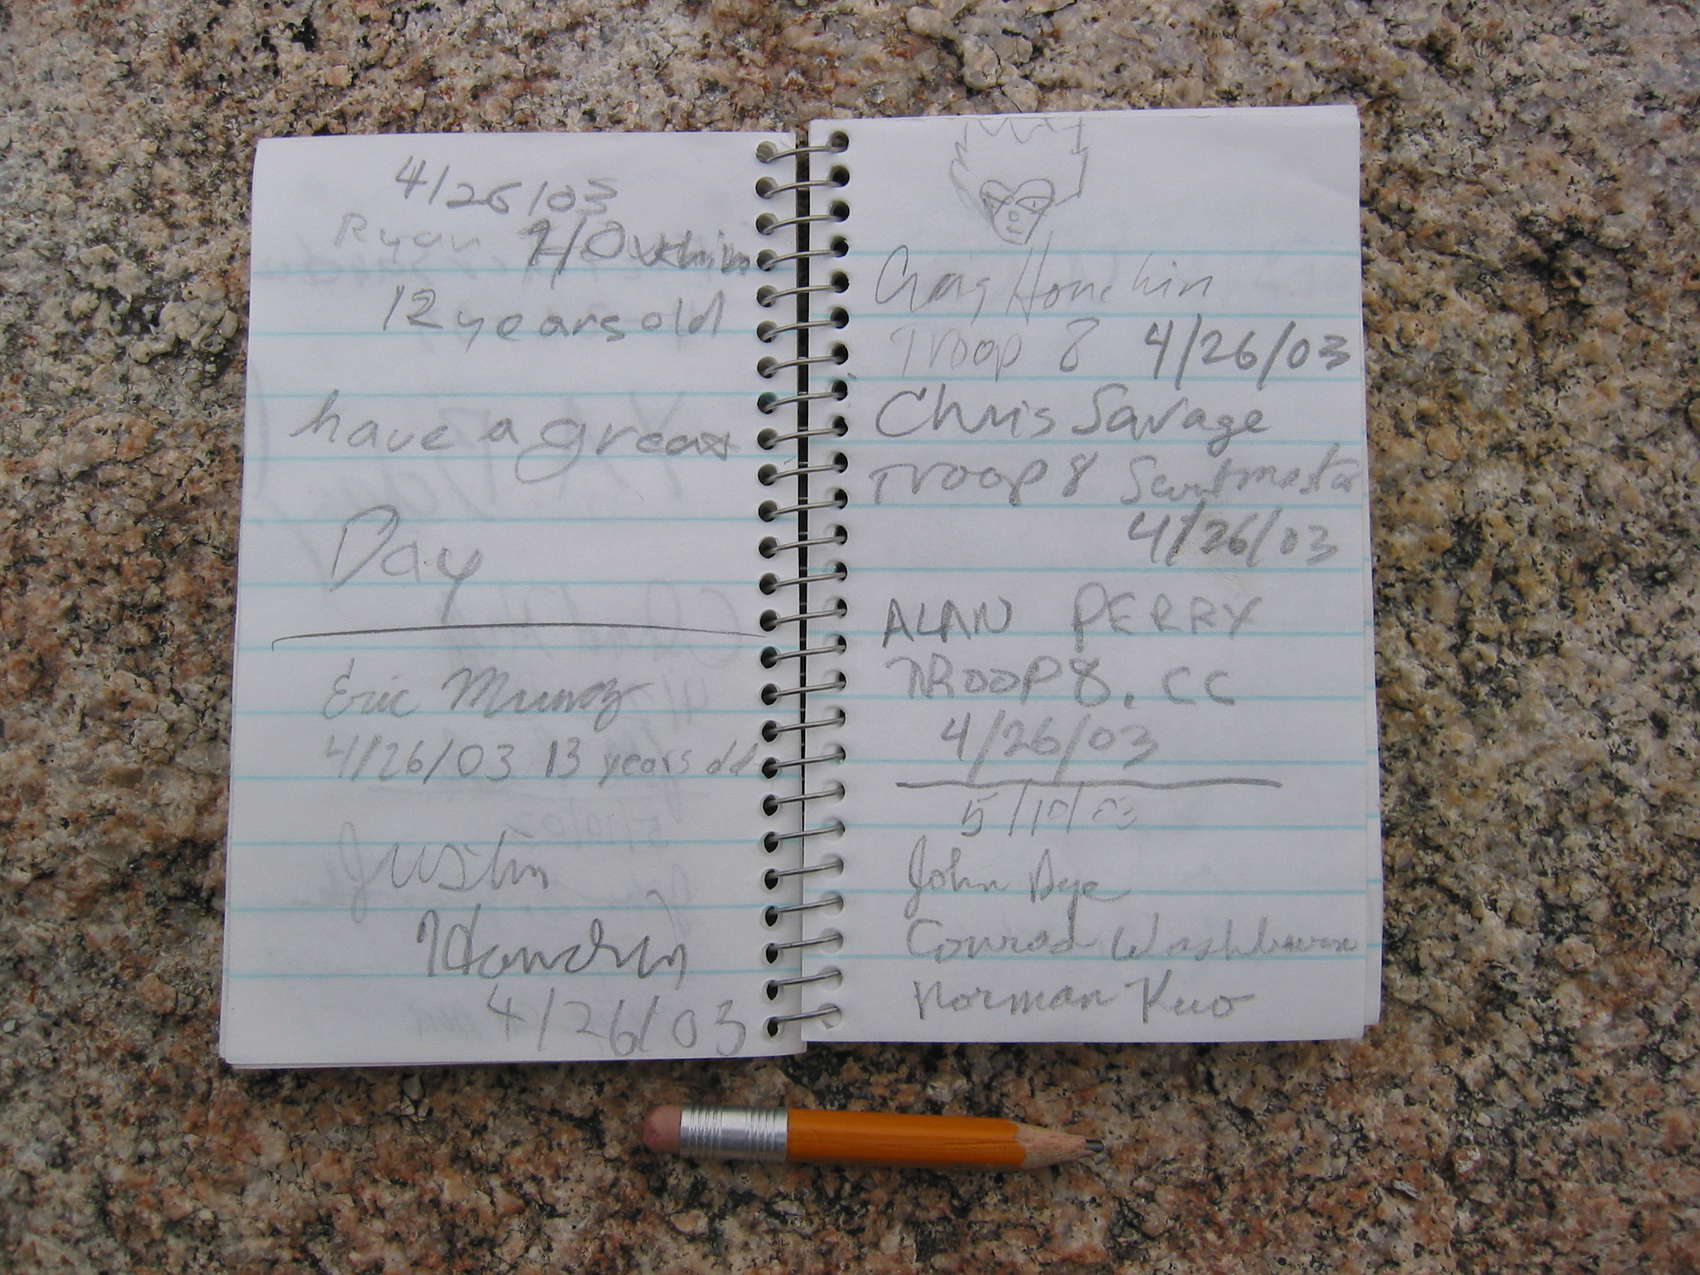 4/26/03
Ryan
12 years old
have a great
Day
Eric Munoz
4/26/03 13 years old
Justin
4/26/03
Craig Honchin
Troop 8 4/26/03
Chris Savage
Troop 8 Scoutmaster
4/26/03
ALAN PERRY
TROOP 8. CC
4/26/03
5/10/03
John Dye
Conrad Washburn
Norman Kuo